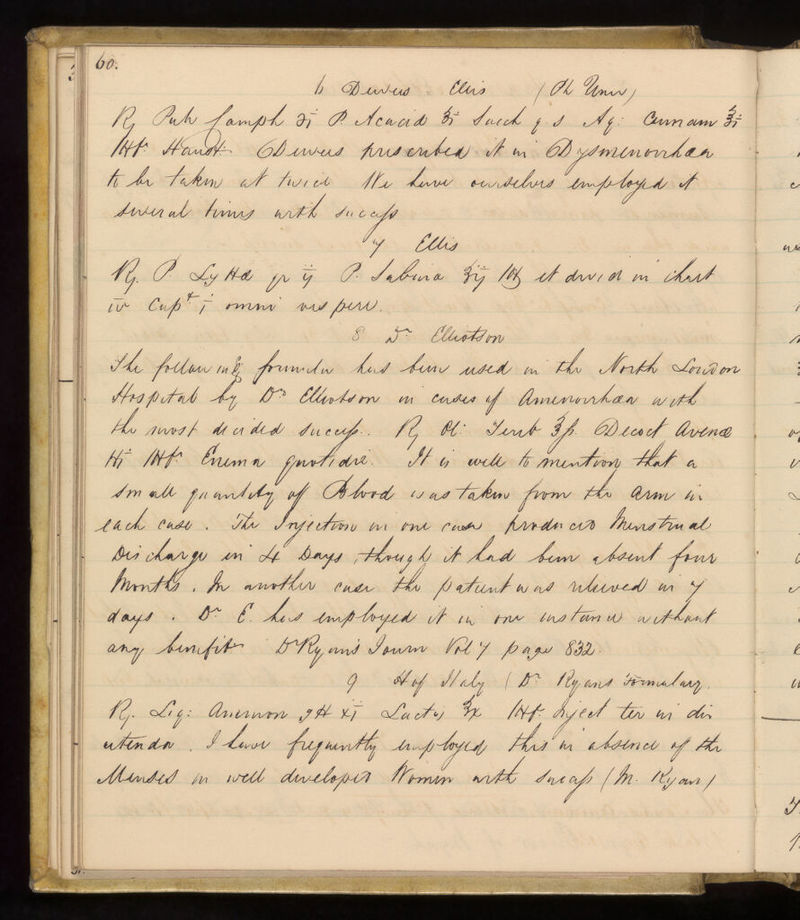 60.
6 Dewees Ellis (Ph Univ)
℞ Pulv Camph ℈i P. Acacia ʒi Sacch q s Aq: Cinnam ℥i
Ht Haust Dewees prescribed it in Dysmenorrhæa
to be taken at twice We have ourselves employed it
several times with success
7 Ellis
℞. P. Lyttæ gr ij P. Sabina ʒij M et divid in chart
iv Capt i omni vespere.
8 Dr Elliotson
The following formula has been used in the North London
Hospital by Dr Elliotson in cases of Amenorrhæa with
the most decided success. ℞ Ol: Tereb ℥ſs. Decoct Avenæ
℔i Ht Enema quotidie. It is well to mention that a
small quantity of Blood was taken from the arm in
each case. The Injection in one case produced Menstrual
Discharge in 4 Days, though it had been absent four
Months. In another case the patient was relieved in 7
days. Dr E. has employed it in one instance without
any benefit Dr Ryan's Journ Vol 7 page 832
9 H of Italy (Dr Ryans Formulary.
℞. Liq: Ammon xi Lactis ℥x Ht. Inject ter in die
utenda. I have frequently employed this in absence of the
Menses in well developed Women with success (M. Ryan)